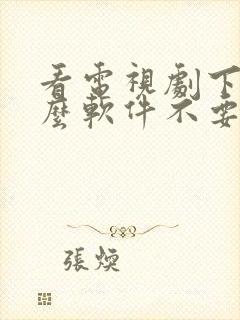 看電視劇下
麼軟件不要
張煥